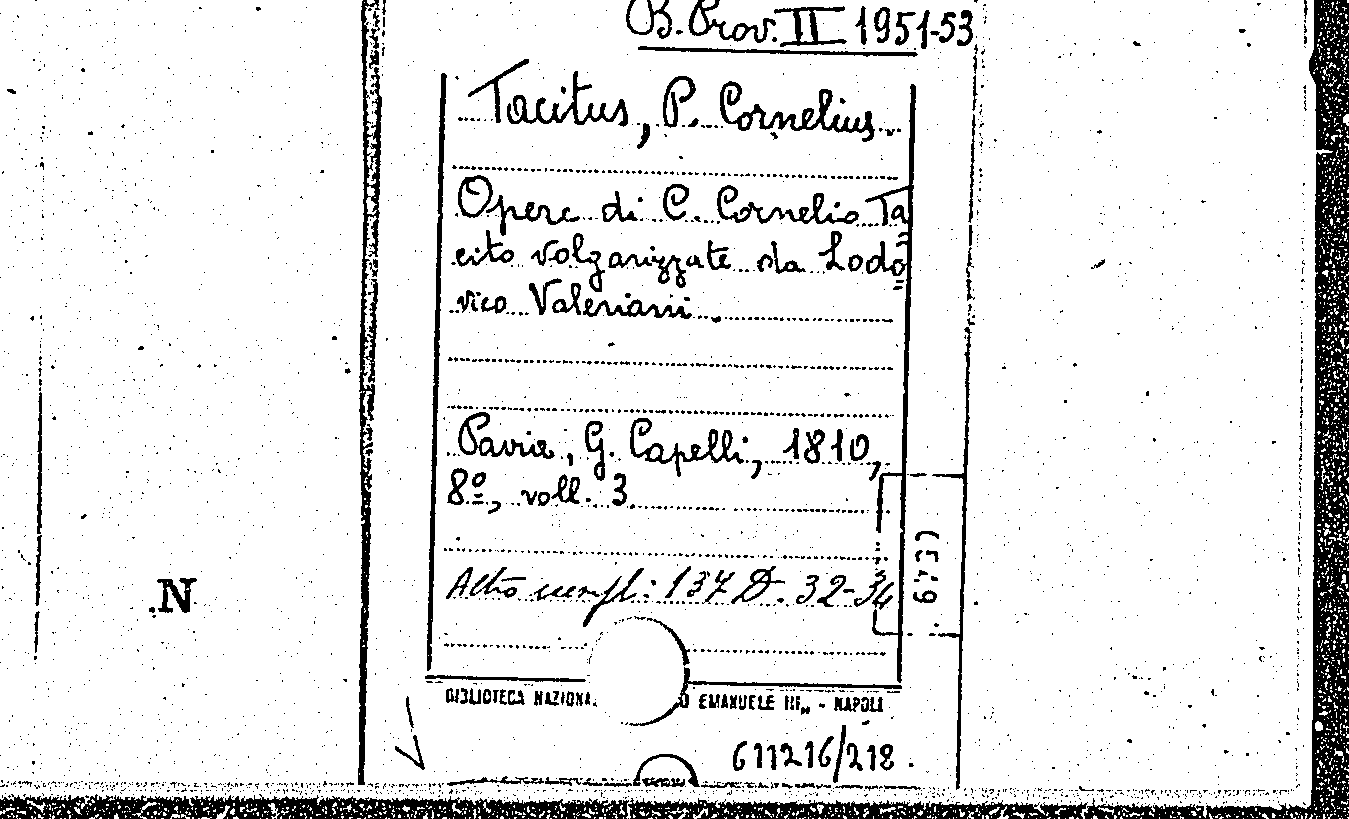 B. Prov. II 1951-53
Tacitus, P. Cornelius.
Opere di C. Cornelio Ta
cito volgarizzate da Lodo
vico Valeriani.
Pavia, G. Capelli, 1810,
8º, voll. 3.
Altro esempl: 137 D. 32-34
BIBLIOTECA NAZIONA O EMANUELE III„ - NAPOLI
611216/218.
N